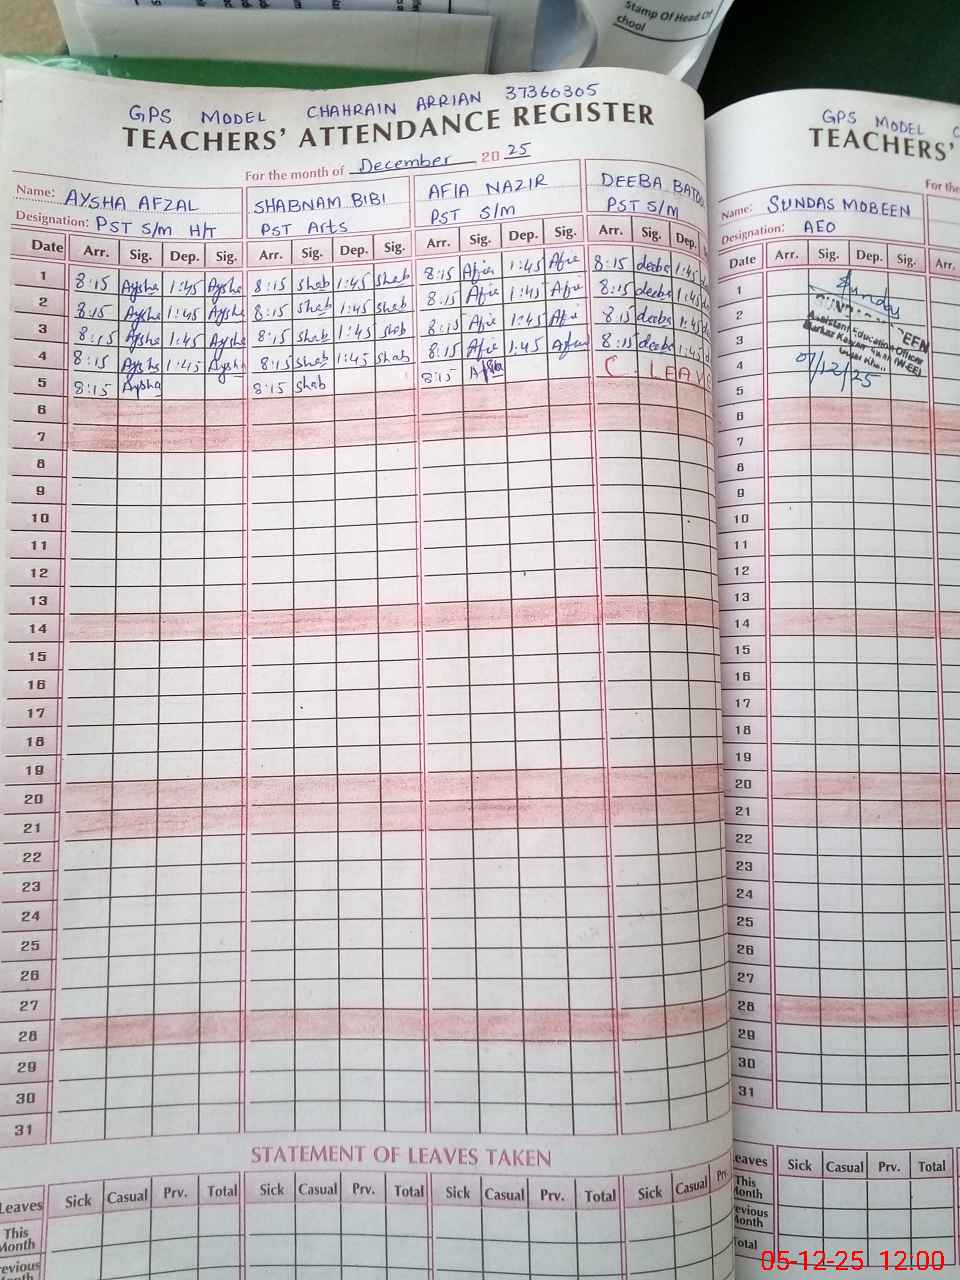 Stamp Of Head Of
chool
GPS MODEL CHAHRAIN ARRIAN 37360305
TEACHERS' ATTENDANCE REGISTER
For the month of December 20 25
Name: AYSHA AFZAL SHABNAM BIBI AFIA NAZIR DEEBA
Designation: PST S/m H/T PST Arts PST S/m PST S/m
Date Arr. Sig. Dep. Sig. Arr. Sig. Dep. Sig. Arr. Sig. Dep. Sig. Arr. Sig. Dep.
1 8:15 Aysha 1:45 Aysha 8:15 Shab 1:45 Shab 8:15 Afia 1:45 Afia 8:15 deeba 1:45
2 8:15 Aysha 1:45 Aysha 8:15 Shab 1:45 Shab 8:15 Afia 1:45 Afia 8:15 deeba 1:45
3 8:15 Aysha 1:45 Aysha 8:15 Shab 1:45 Shab 8:15 Afia 1:45 Afia 8:15 deeba 1:45
4 8:15 Aysha 1:45 Aysha 8:15 Shab 1:45 Shab 8:15 Afia 1:45 Afia 8:15 deeba 1:45
5 8:15 Aysha 8:15 Shab 8:15 Afia C. LEAVE
6
7
8
9
10
11
12
13
14
15
16
17
18
19
20
21
22
23
24
25
26
27
28
29
30
31
STATEMENT OF LEAVES TAKEN
Leaves Sick Casual Prv. Total Sick Casual Prv. Total Sick Casual Prv. Total Sick Casual
This
Month
GPS MODEL
TEACHERS'
For the
Name: SUNDAS MOBEEN
Designation: AEO
Date Arr. Sig. Dep. Sig. Arr.
1
2
3
4
5
6
7
8
9
10
11
12
13
14
15
16
17
18
19
20
21
22
23
24
25
26
27
28
29
30
31
Sundas
Assistant Education Officer
/12/25
eaves Sick Casual Prv. Total
This
Month
evious
Month
otal
05-12-25 12:00